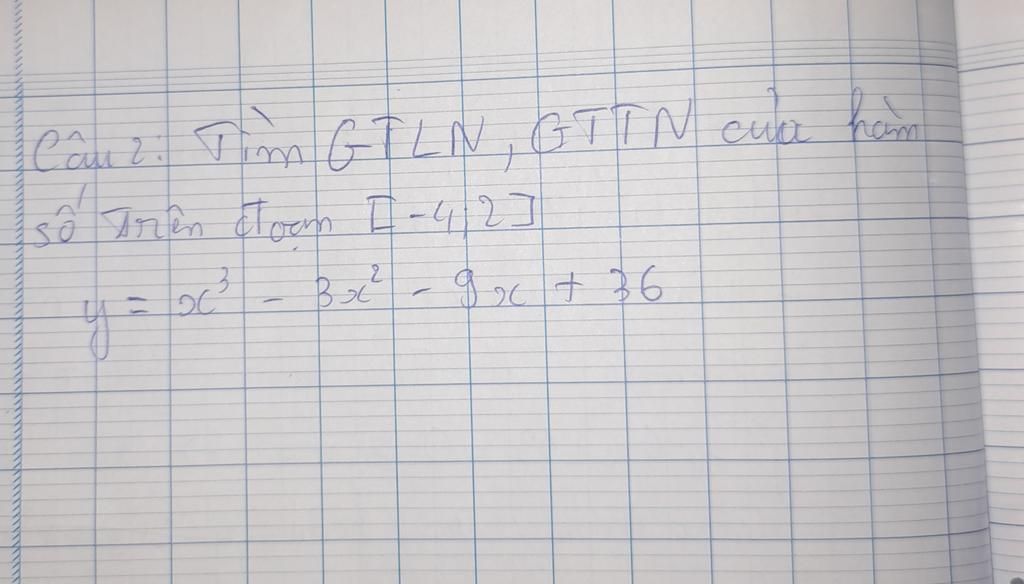 Câu 2: Tìm GTLN, GTTN của hàm
số trên đoạn [-4, 2]
y = x³ - 3x² - 9x + 36